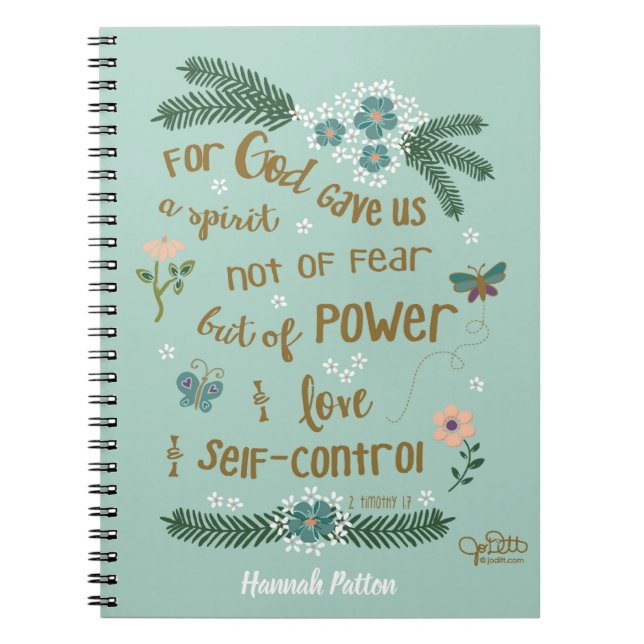 For God gave us
a spirit
not of fear
but of POWER
& love
& self-control
2 Timothy 1:7
Jo Ditt
© joditt.com
Hannah Patton